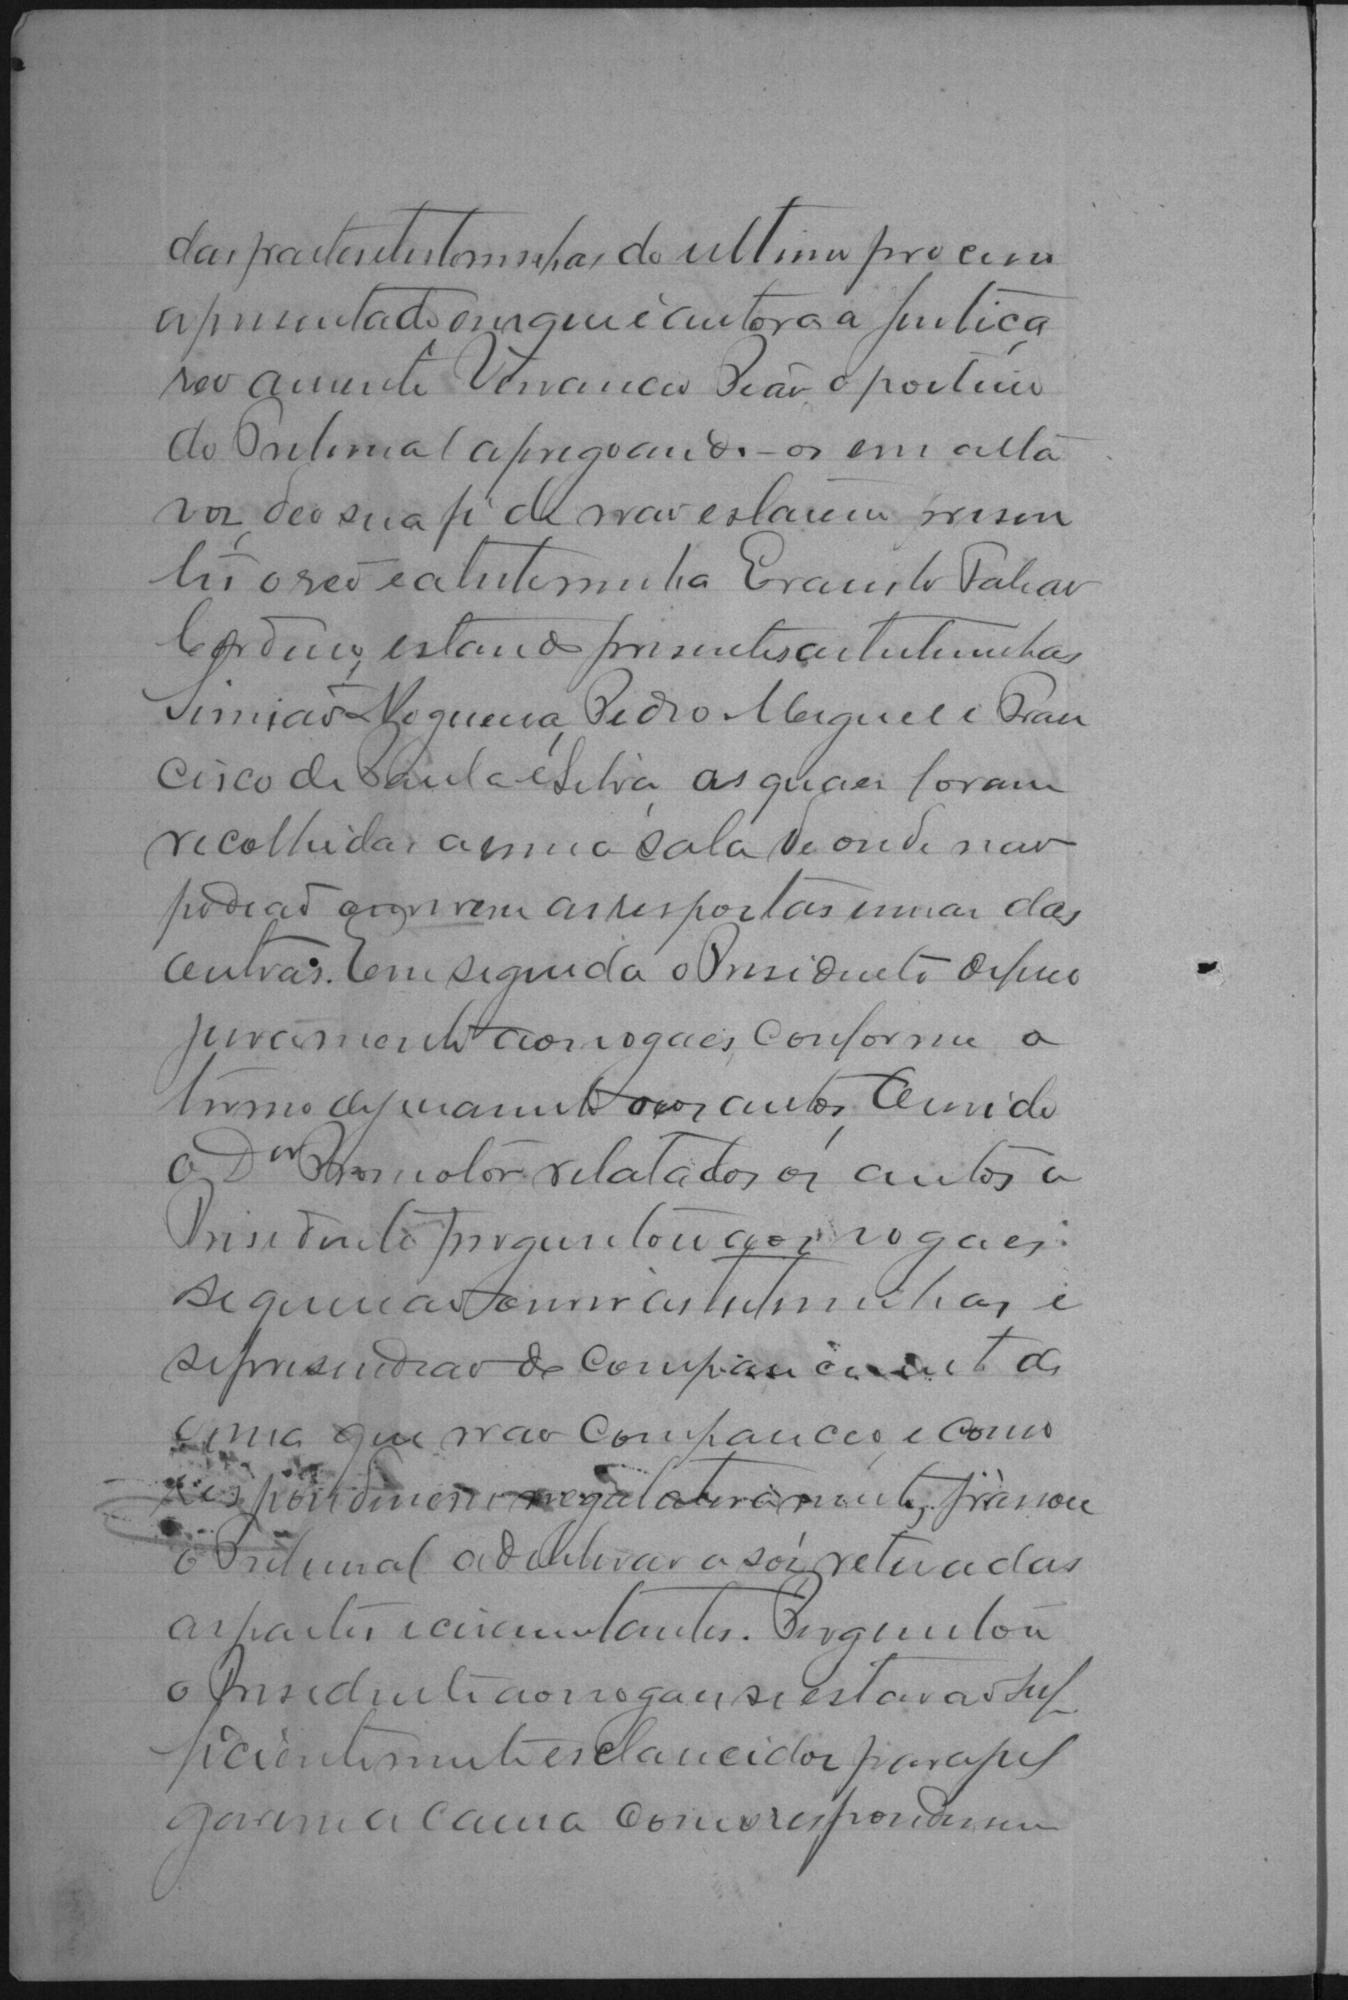 das partes e testemunhas do ultimo processo
apresentado em que é autora a Justiça
reo ausente Venancio Leão, o porteiro
do Tribunal apregoando-os em alta
voz, deo sua fé de não estarem presen
tes o reo e a testemunha Evaristo
Cordeiro, estando presentes as testemunhas
Simião Nogueira, Pedro Miguel e Fran
cisco de Paula e Silva, as quaes foram
recolhidas a uma sala de onde não
podião ouvirem as respostas umas das
outras. Em seguida o Presidente deferio
juramento aos vogaes, conforme o
termo de juramento nos autos, Ouvido
o Dor Promotor relatados os autos o
Presidente perguntou aos vogaes:
se querião ouvir as testemunhas e
se prescindião do comparecimento da
uma que não compareceo, e como
respondessem negatativamente, passou
o Tribunal a deliberar a sós, retiradas
as partes e circunstantes. Perguntou
o Presidente aos vogaes se estavão suf
ficientemente esclarecidos para jul
garem a causa como respondessem